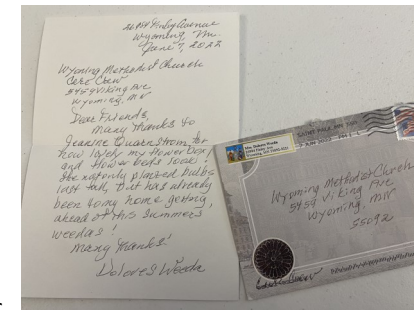 Wyoming, Mn.
June 7, 2022
Wyoming Methodist Church
Care Crew
5459 Viking Ave
Wyoming, MN
Dear Friends,
Many thanks to
Jeanine Quarnstrom for
how lovely my flower box
and flower beds look!
She not only planted bulbs
last fall, but has already
been to my home getting
ahead of this summers
weeds!
Many thanks!
Dolores Weeda
SAINT PAUL MN
Wyoming Methodist Church
5459 Viking Ave
Wyoming MN
55092